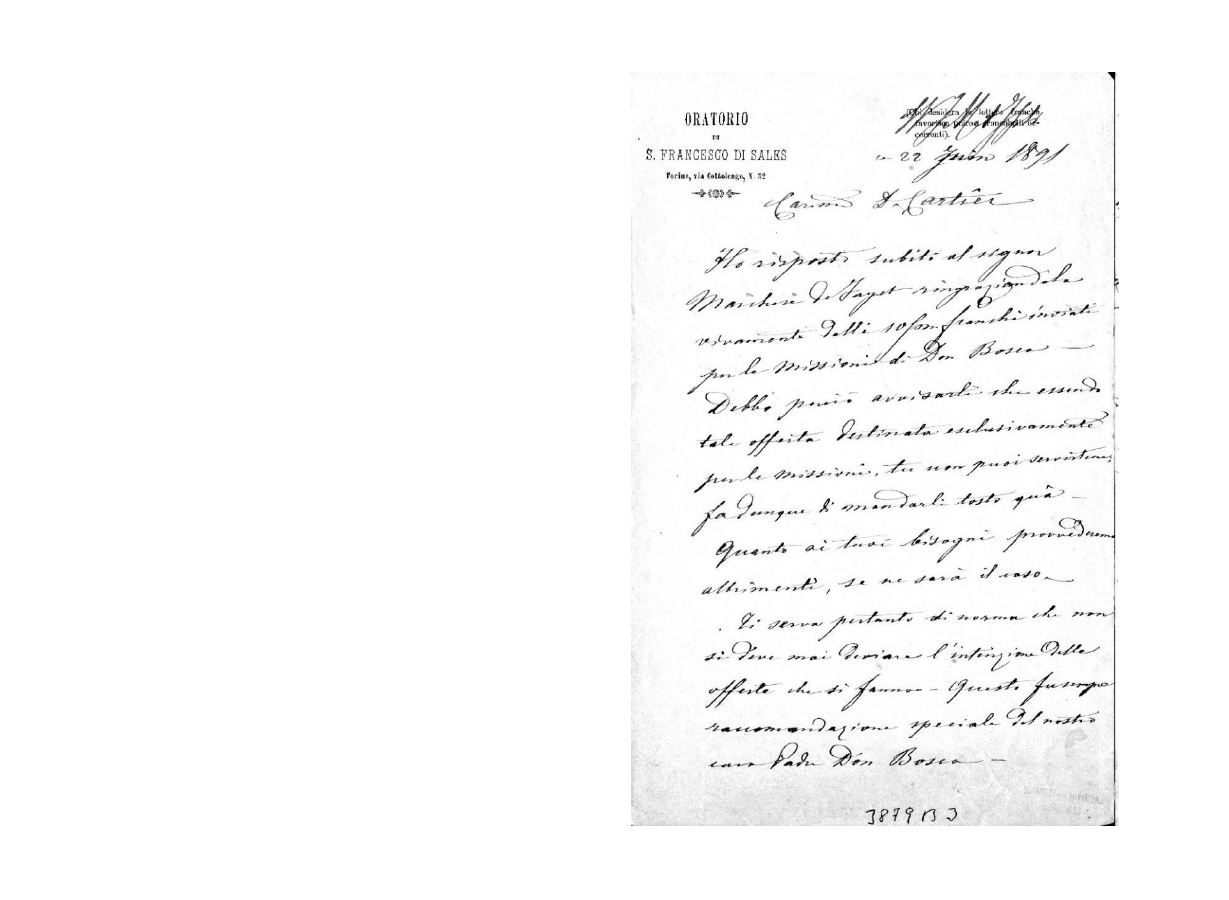 ORATORIO
DI
S. FRANCESCO DI SALES
Torino, via Cottolengo, N. 32
(Chi desidera la lettera franca,
correnti).
22 Juin 1891
D. Cartier
Ho risposto subito al signor
Marchese de Faget ringraziandola
vivamente delli franchi inviati
per le missioni di Don Bosco —
Debbo perciò avvisarti che essendo
tale offerta destinata esclusivamente
per le missioni, tu non puoi servirtene,
fa dunque di mandarli tosto quà —
Quanto ai tuoi bisogni provvederemo
altrimenti, se ne sarà il caso —
Ti serva pertanto di norma che non
si deve mai deviare l'intenzione delle
offerte che si fanno — Questo fu sempre
raccomandazione speciale del nostro
caro Padre Don Bosco —
3879 B 3